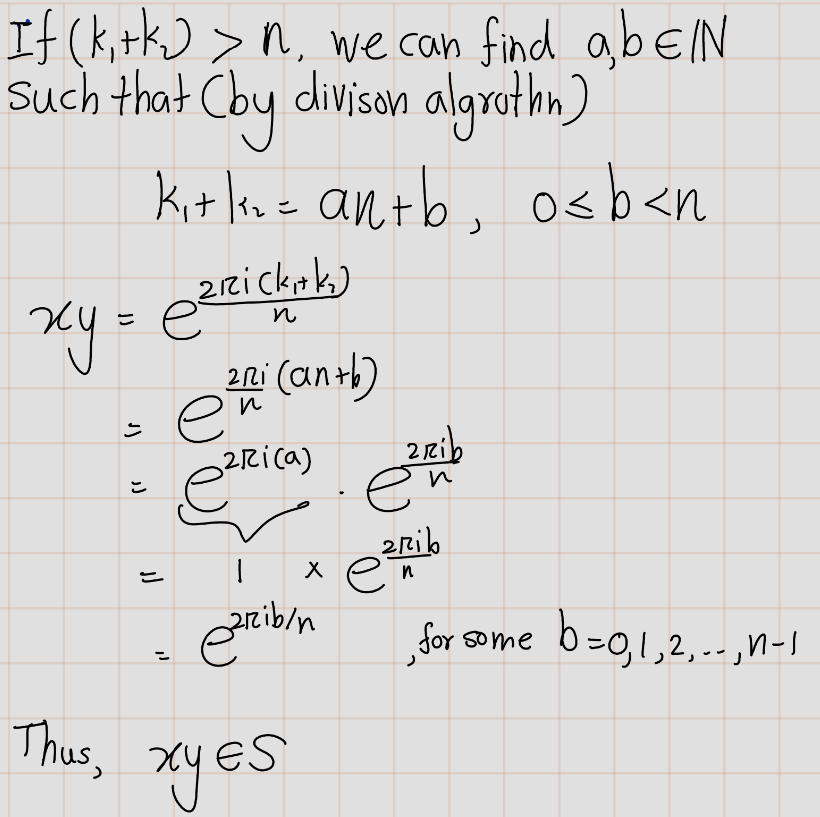 If (k₁+k₂) > n, we can find a,b ∈ ℕ
such that (by divison algrothn)
k₁ + k₂ = an + b , 0 ≤ b < n
xy = e^{2πi(k₁+k₂)/n}
= e^{2πi/n (an+b)}
= e^{2πi(a)} · e^{2πib/n}
= 1 × e^{2πib/n}
= e^{2πib/n} , for some b = 0, 1, 2, ..., n-1
Thus, xy ∈ S